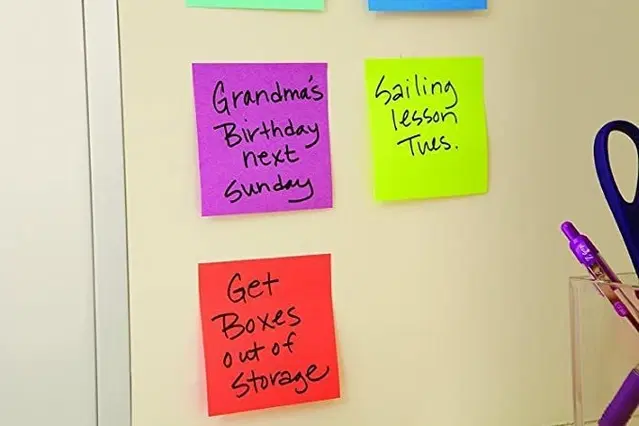 Grandma's
Birthday
next
Sunday
Sailing
lesson
Tues.
Get
Boxes
out of
Storage